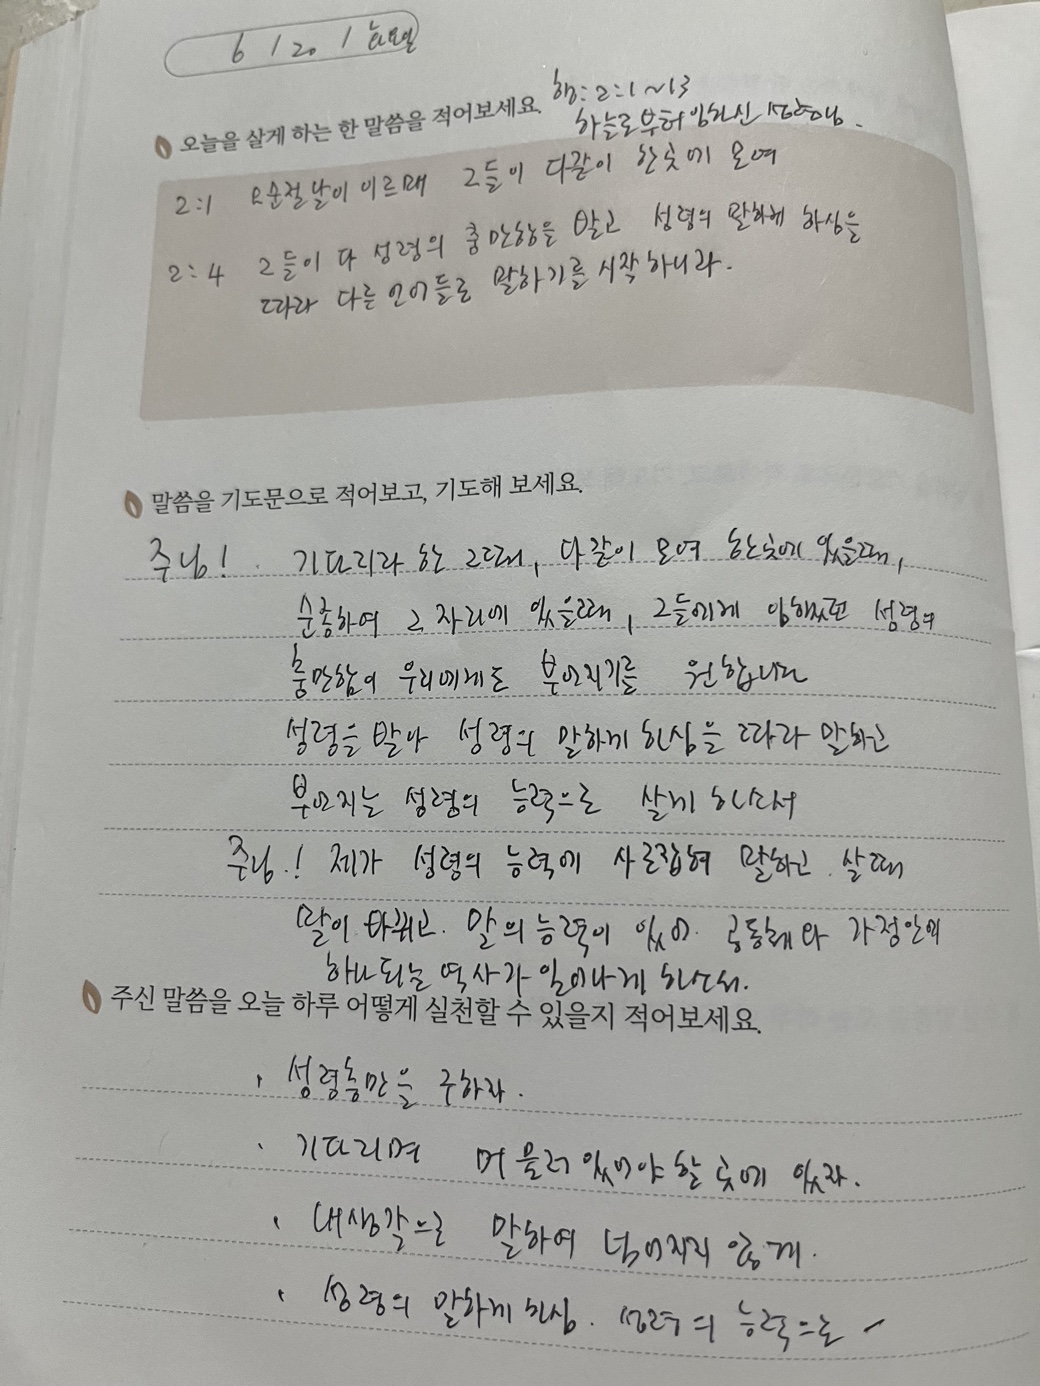 6 / 20 / 화요일
행: 2:1~13
오늘을 살게 하는 한 말씀을 적어보세요.
하늘로부터 임하신 성령님.
2:1 오순절날이 이르매 그들이 다같이 한곳에 모여
2:4 그들이 다 성령의 충만함을 받고 성령의 말하게 하심을
따라 다른 언어들로 말하기를 시작하니라.
말씀을 기도문으로 적어보고, 기도해 보세요.
주님! 기다리라 한 그때, 다같이 모여 한곳에 있을때,
순종하여 그 자리에 있을때, 그들에게 임했던 성령의
충만함이 우리에게도 부어지기를 원합니다
성령을 받아 성령의 말하게 하심을 따라 말하고
부어지는 성령의 능력으로 살게 하소서
주님.! 제가 성령의 능력에 사로잡혀 말하고 살때
말이 바뀌고. 말의 능력이 있어. 공동체와 가정안에
하나되는 역사가 일어나게 하소서.
주신 말씀을 오늘 하루 어떻게 실천할 수 있을지 적어보세요.
· 성령충만을 구하라.
· 기다리며 머물러 있어야 할 곳에 있자.
· 내생각으로 말하여 넘어지지 않게.
· 성령의 말하게 하심. 성령의 능력으로 ~